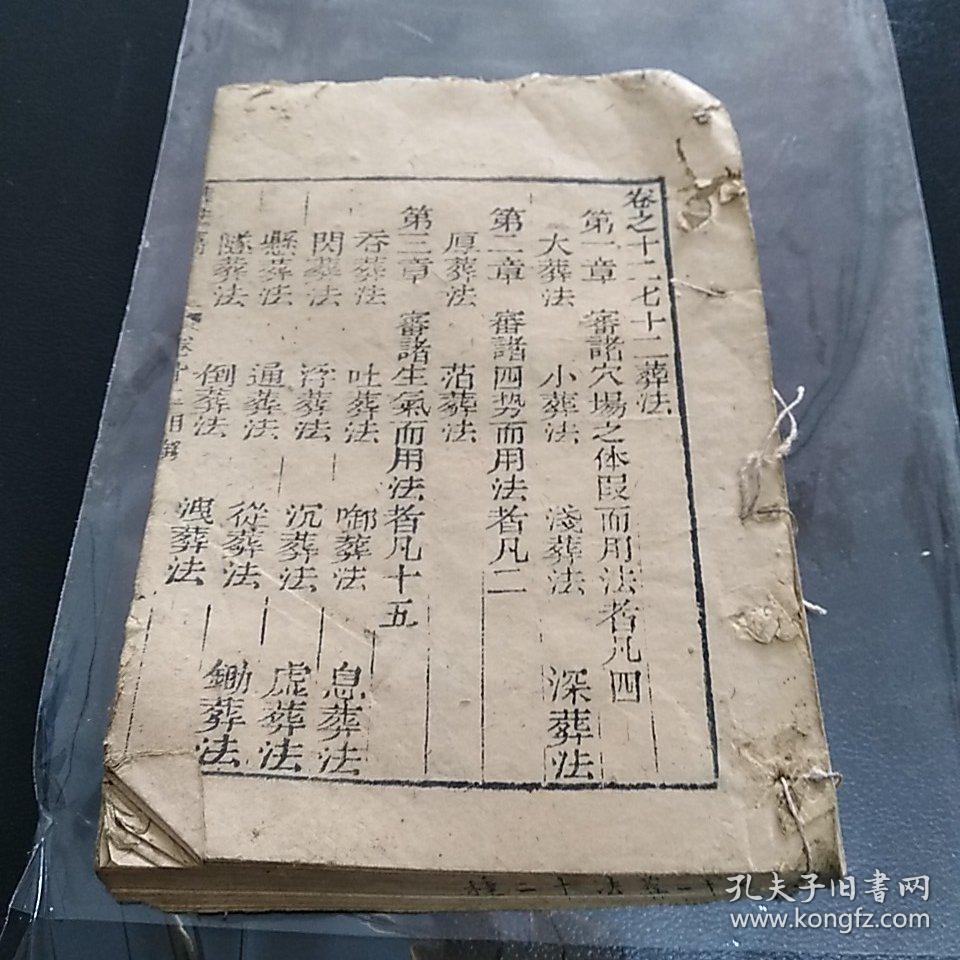 卷之十二七十二葬法
第一章 審諸穴場之体段而用法者凡四
大葬法 小葬法 淺葬法 深葬法
第二章 審諸四势而用法者凡二
厚葬法
第三章 審諸生氣而用法者凡十五
吞葬法 吐葬法 葬法 息葬法
閃葬法 浮葬法 沉葬法 虚葬法
懸葬法 通葬法 從葬法 鋤葬法
葬法 倒葬法 洩葬法
孔夫子旧書网
www.kongfz.com